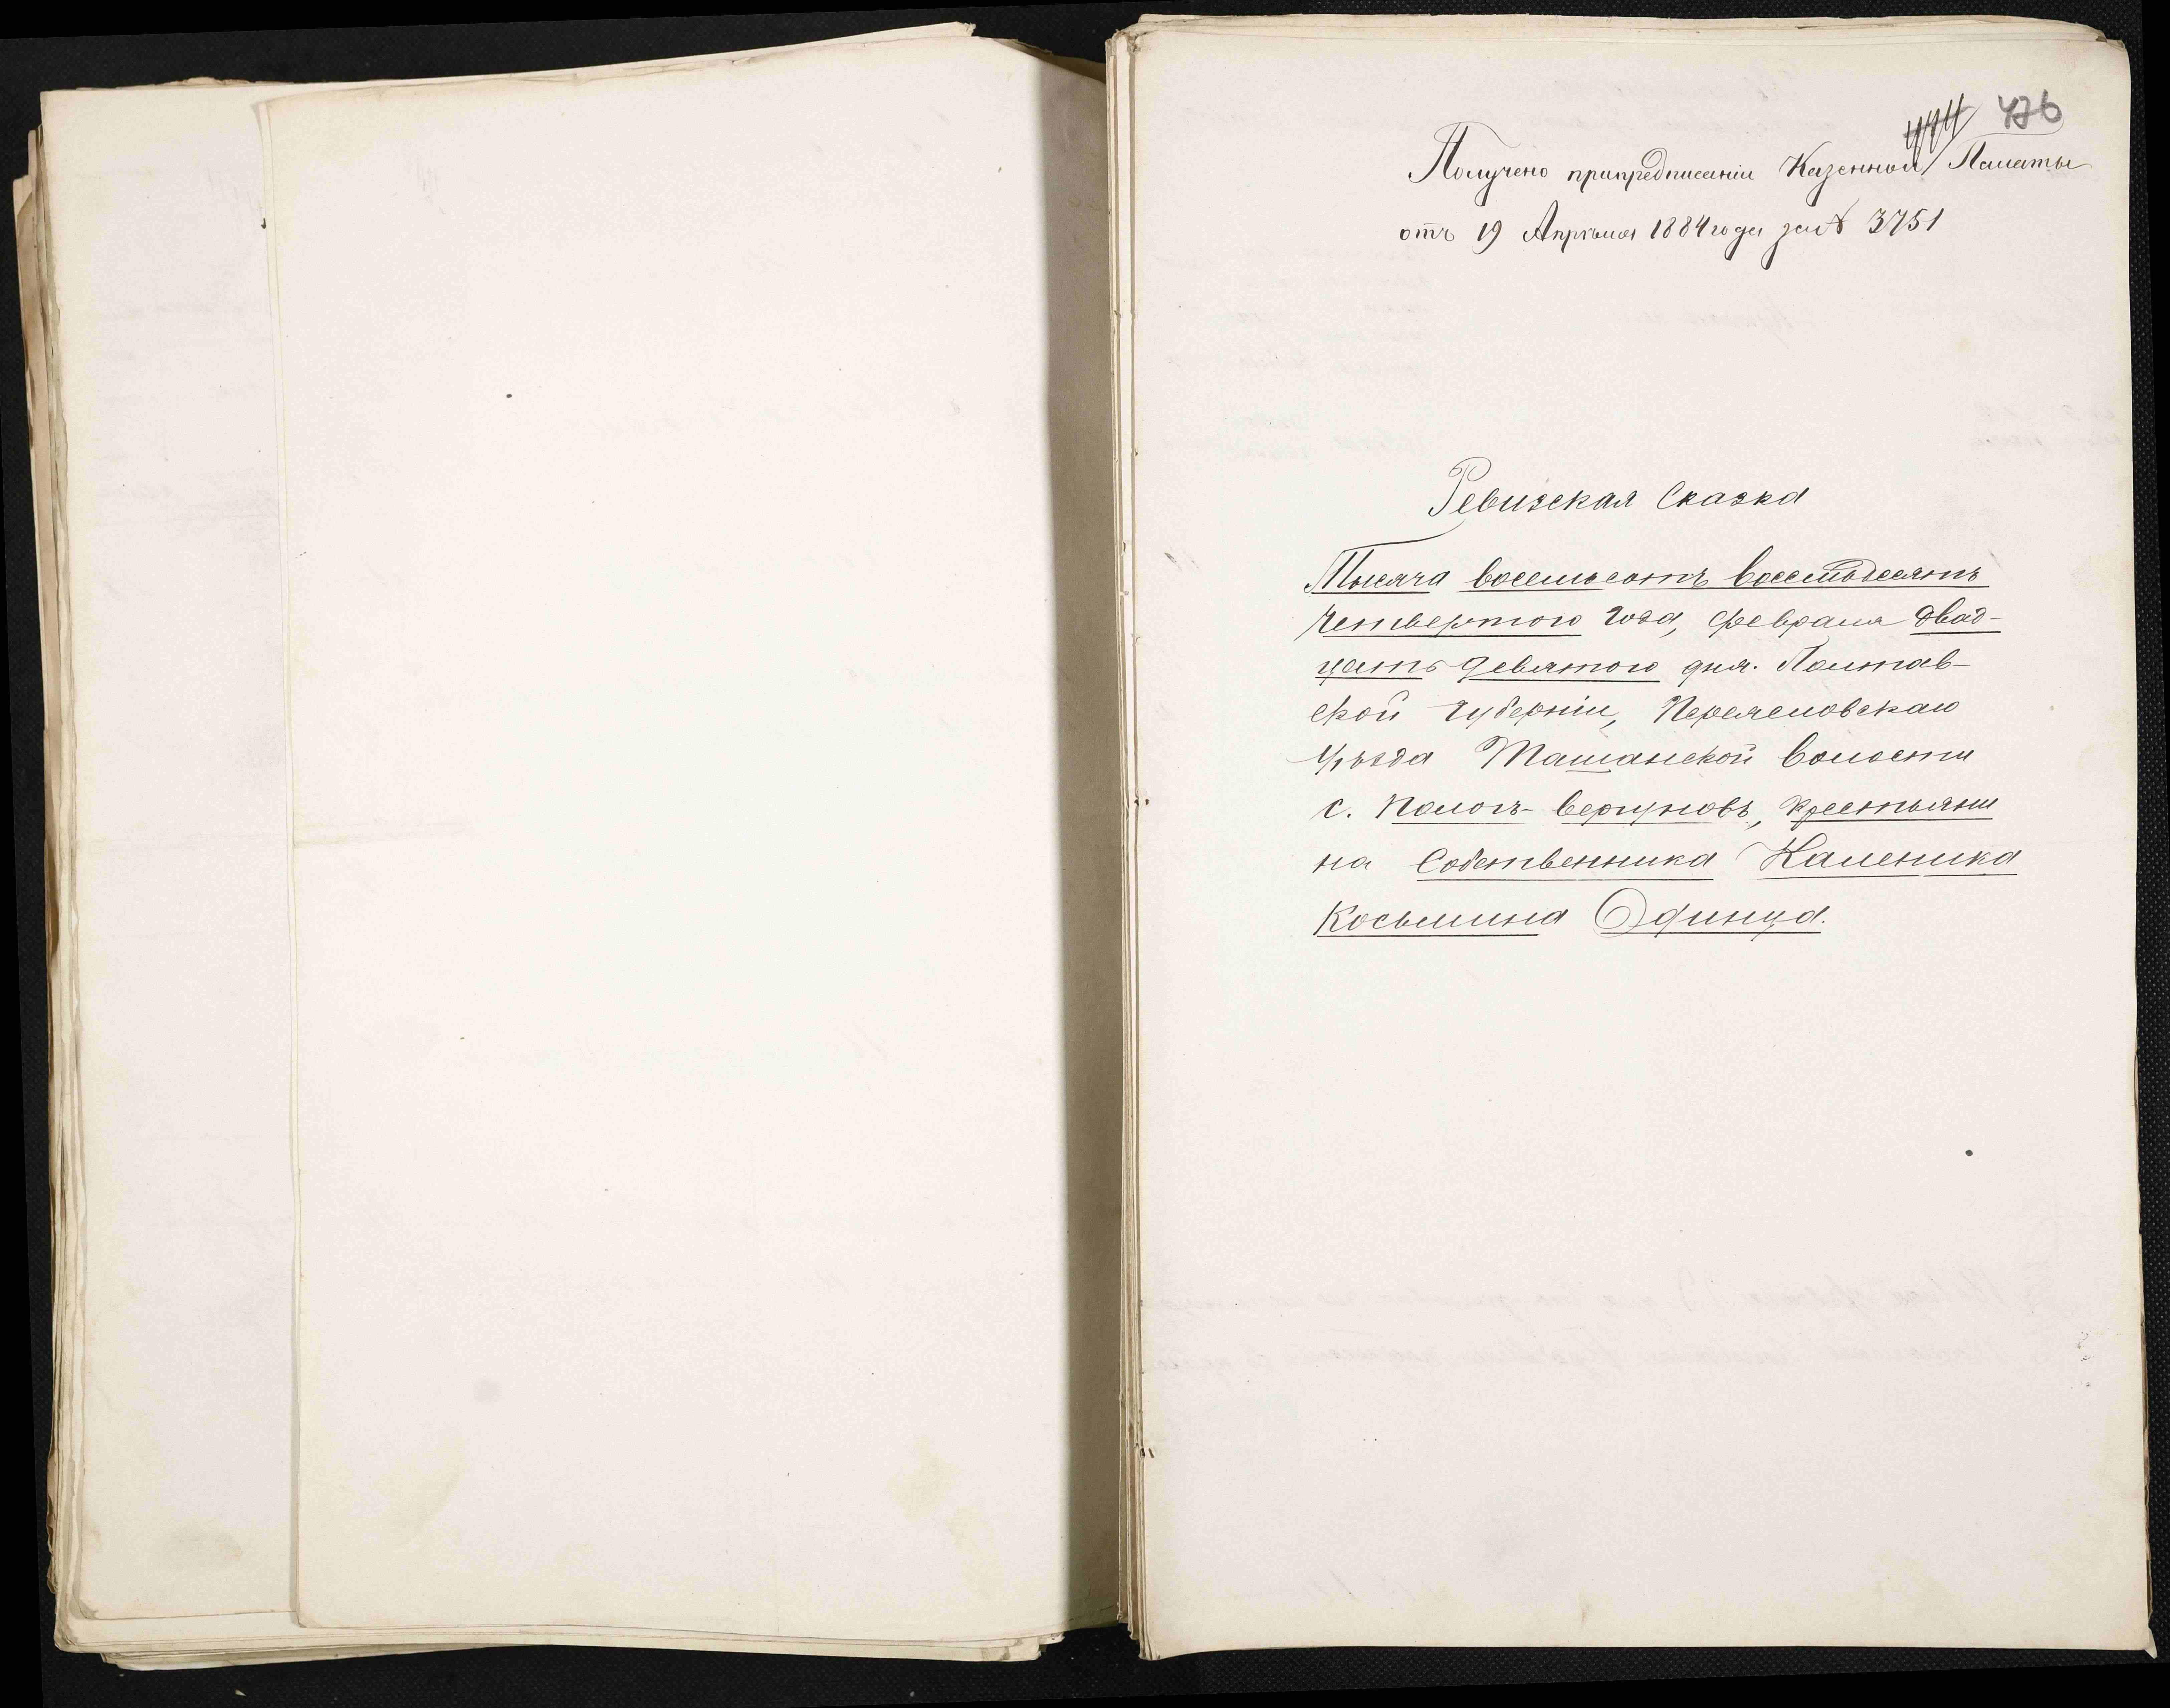 476
Получено припредписаніи Казенной Палаты
отъ 19 Апрѣля 1884 года за № 3751
Ревизская Сказка
Тысяча восемьсотъ восемьдесятъ
Четвертого года, февраля двад-
цать девятого дня. Полтав-
ской губерніи, Переяславскаго
уѣзда Ташанской волости
с. Пологъ-вергуновъ, крестьяни
на Собственника Каленика
Косьмина Одинца.